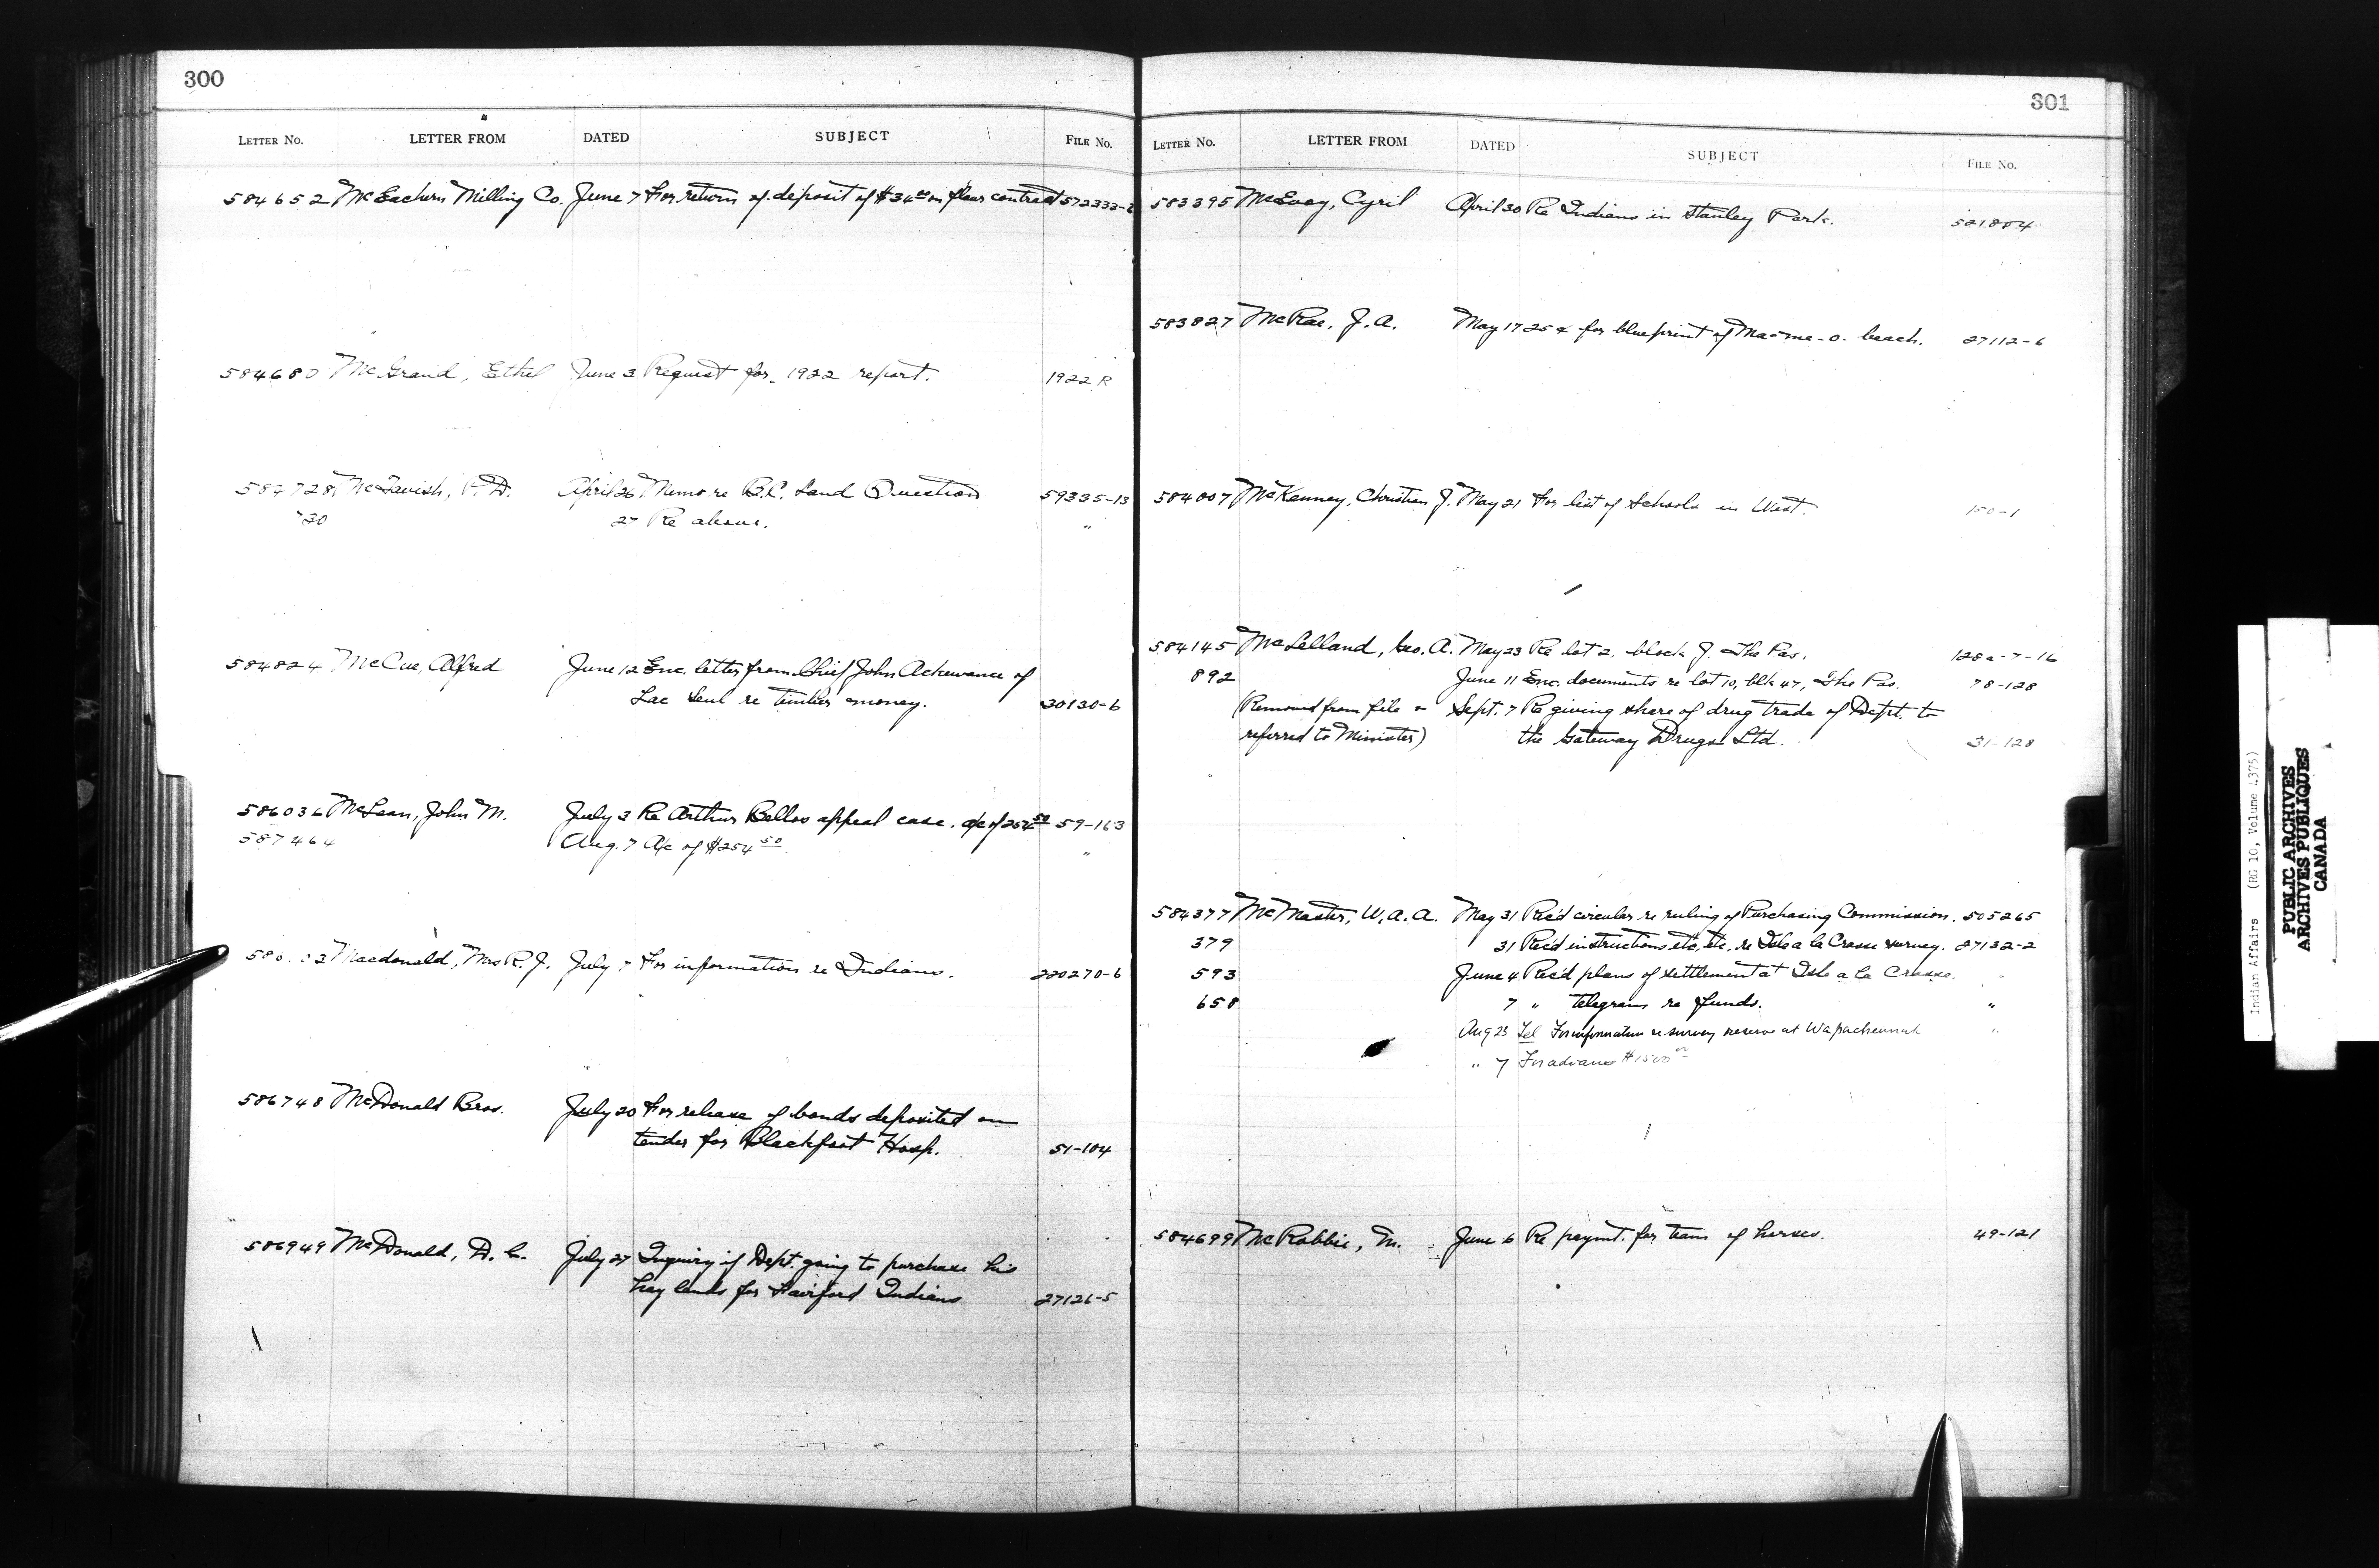 300
LETTER No. LETTER FROM DATED SUBJECT FILE No.
584652 McEachern Milling Co. June 7 For return of deposit of $36.00 on flour contract 572332-2
584680 McGraid, Ethel June 3 Request for 1922 report. 1922 R
587728 McTavish, P. D. April 26 Memo re B.C. Land Question 59335-13
"30 27 Re above. "
584824 McCue, Alfred June 12 Enc. letter from Chief John Ackewance of
Lac Seul re timber money. 30130-6
586036 McLean, John M. July 3 Re Arthur Bellos appeal case. a/c of 254.50 59-163
587464 Aug. 7 A/c of $254.50 "
Macdonald, Mrs R. J. July 7 For information re Indians. 220270-6
586748 McDonald Bros. July 20 For release of bonds deposited on
tender for Blackfoot Hosp. 51-104
586949 McDonald, D. C. July 27 Inquiry if Dept. going to purchase his
hay lands for Fairford Indians 27126-5
301
LETTER No. LETTER FROM DATED SUBJECT FILE No.
583395 McEvoy, Cyril April 30 Re Indians in Stanley Park. 521804
583827 McRae, J. A. May 17 25¢ for blueprint of Ma-me-o. beach. 27112-6
584007 McKenney, Christian J. May 21 For list of Schools in West. 150-1
584145 McLelland, Geo. A. May 23 Re lot 2, block J. The Pas. 128a-7-16
892 June 11 Enc. documents re lot 10, blk 47, The Pas. 78-128
(Removed from file & Sept. 7 Re giving share of drug trade of Dept. to
referred to Minister) the Gateway Drugs Ltd. 31-128
584377 McMaster, W. A. A. May 31 Rec'd circular re ruling of Purchasing Commission. 505265
379 31 Rec'd instructions etc, etc. re Isle a la Crosse survey. 27132-2
593 June 4 Rec'd plans of settlement at Isle a la Crosse. "
658 7 " telegram re funds. "
Aug 23 Tel For information re survey reserve at "
" 7 For advance $1500.00
584699 McRobbie, M. June 6 Re paymt. for team of horses. 49-121
Indian Affairs (RG 10, Volume 4375)
PUBLIC ARCHIVES
ARCHIVES PUBLIQUES
CANADA